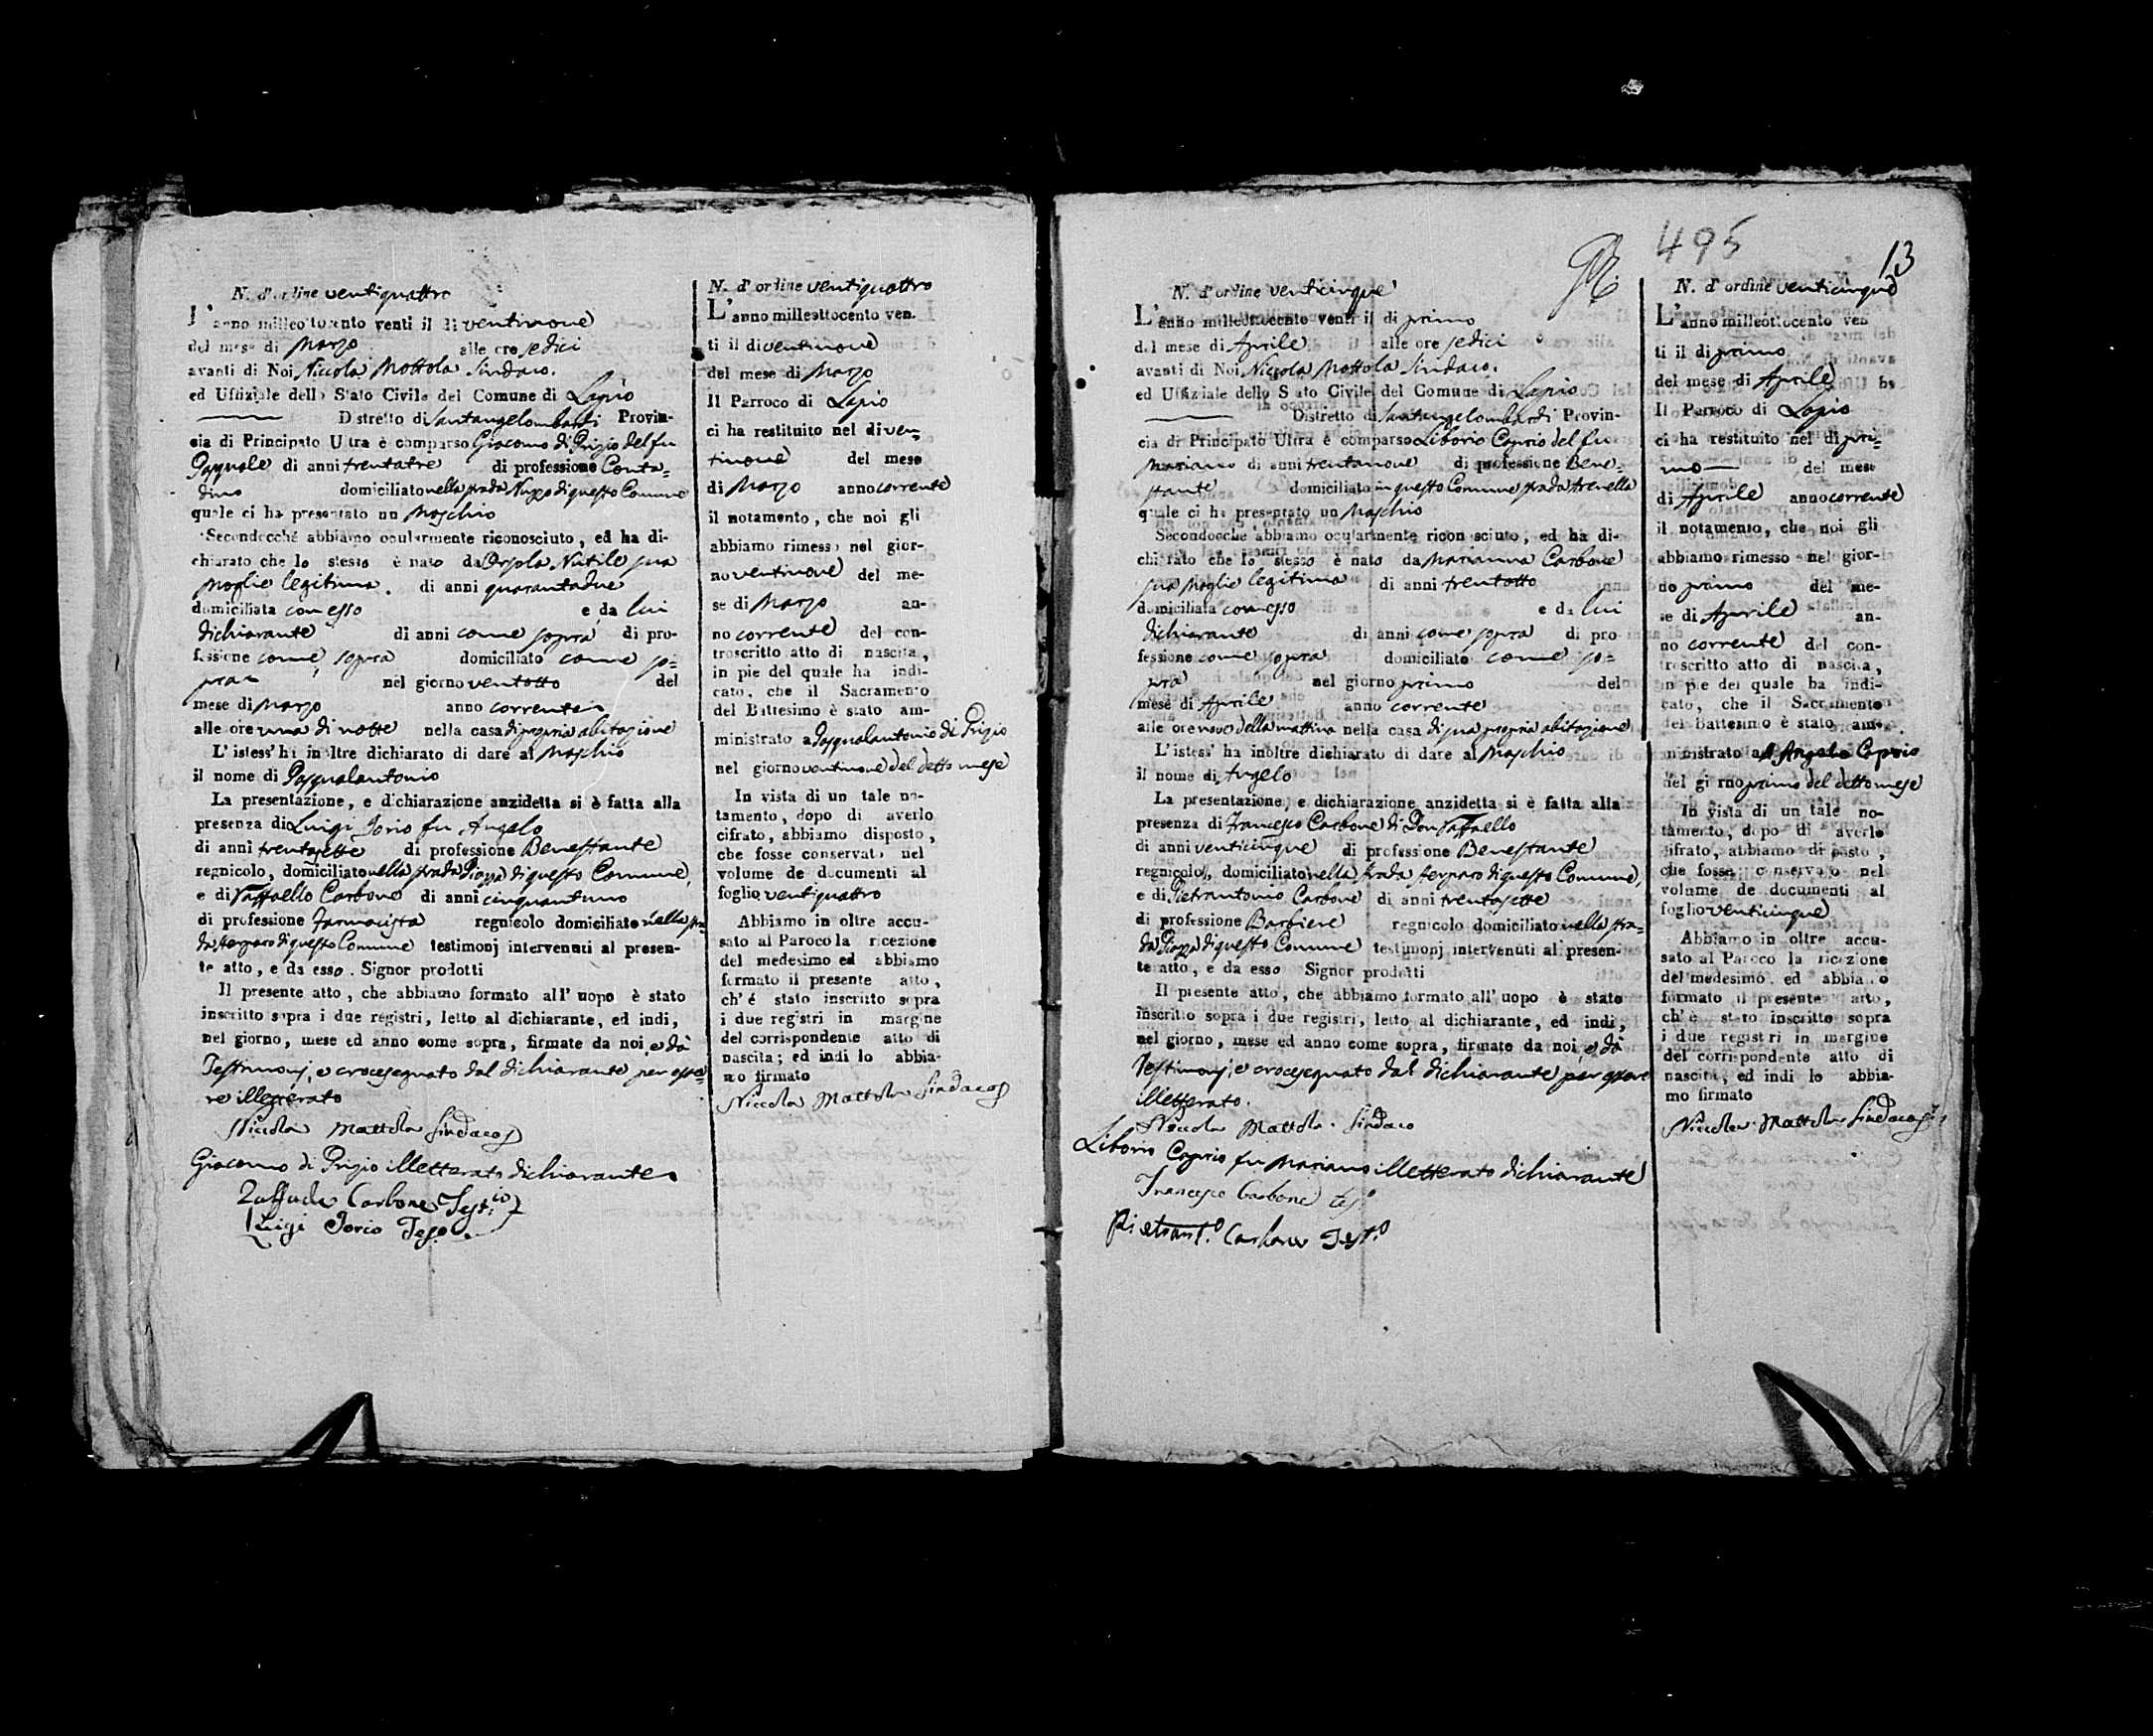 N. d'ordine ventiquattro
L'anno milleottocento venti il di ventinove
del mese di Marzo alle ore sedici
avanti di Noi Niccola Mottola Sindaco.
ed Uffiziale dello Stato Civile del Comune di Lapio
Distretto di Santangelombardi Provin-
cia di Principato Ultra è comparso Giacomo di Prizio del fu
Pasquale di anni trentatre di professione Conta=
dino domiciliato nella strada Nuzzo di questo Comune
quale ci ha presentato un Maschio
Secondocché abbiamo ocularmente riconosciuto, ed ha di-
chiarato che lo stesso è nato da Orsola Nutile sua
moglie legitima. di anni quarantadue
domiciliata con esso e da lui
dichiarante di anni come sopra di pro-
fessione come sopra domiciliato come so=
pra nel giorno ventotto del
mese di Marzo anno corrente
alle ore una di notte nella casa di propria abitazione
L'istess' ha inoltre dichiarato di dare al Maschio
il nome di Pasqualantonio
La presentazione, e dichiarazione anzidetta si è fatta alla
presenza di Luigi Iorio fu Angelo
di anni trentasette di professione Benestante
regnicolo, domiciliato nella strada Piazza di questo Comune,
e di Raffaello Carbone di anni cinquantuno
di professione Farmacista regnicolo domiciliato nella stra=
da di questo Comune testimonj intervenuti al presen-
te atto, e da esso. Signor prodotti
Il presente atto, che abbiamo formato all'uopo è stato
inscritto sopra i due registri, letto al dichiarante, ed indi,
nel giorno, mese ed anno come sopra, firmate da noi, e dà
Testimonj, e crocesegnato dal dichiarante per esse=
re illetterato
Niccola Mottola Sindaco
Giacomo di Prizio illetterato dichiarante
Raffaele Carbone Test.io
Luigi Iorio Teso
N. d'ordine ventiquattro
L'anno milleottocento ven-
ti il di ventinove
del mese di Marzo
Il Parroco di Lapio
ci ha restituito nel di ven=
tinove del mese
di Marzo anno corrente
il notamento, che noi gli
abbiamo rimesso nel gior-
no ventinove del me-
se di Marzo an-
no corrente del con-
troscritto atto di nascita,
in pie del quale ha indi-
cato, che il Sacramento
del Battesimo è stato am-
ministrato a Pasqualantonio di Prizio
nel giorno ventinove del detto mese
In vista di un tale no-
tamento, dopo di averlo
cifrato, abbiamo disposto,
che fosse conservato nel
volume de documenti al
foglio ventiquattro
Abbiamo in oltre accu-
sato al Paroco la ricezione
del medesimo ed abbiamo
formato il presente atto,
ch'é stato inscritto sopra
i due registri in margine
del corrispondente atto di
nascita; ed indi lo abbia-
mo firmato
Niccola Mottola Sindaco
495
13
N. d'ordine venticinque
L'anno milleottocento venti il di primo
del mese di Aprile alle ore sedici
avanti di Noi Niccola Mottola Sindaco.
ed Uffiziale dello Stato Civile del Comune di Lapio
Distretto di Santangelombardi Provin-
cia di Principato Ultra è comparso Liborio Caprio del fu
Mariano di anni trentanove di professione Bene=
stante domiciliato in questo Comune strada
quale ci ha presentato un Maschio
Secondocche abbiamo ocularmente riconosciuto, ed ha di-
chiarato che lo stesso è nato da Marianna Carbone
sua moglie legitima di anni trentotto
domiciliata con esso e da lui
dichiarante di anni come sopra di pro
fessione come sopra domiciliato come so=
pra nel giorno primo del
mese di Aprile anno corrente
alle ore nove della mattina nella casa di sua propria abitazione
L'istess' ha inoltre dichiarato di dare al Maschio
il nome di Angelo
La presentazione, e dichiarazione anzidetta si è fatta alla
presenza di Francesco Carbone di Don Raffaello
di anni venticinque di professione Benestante
regnicolo, domiciliato nella strada di questo Comune,
e di Pietrantonio Carbone di anni trentasette
di professione Barbiere regnicolo domiciliato nella stra=
da Piazza di questo Comune testimonj intervenuti al presen-
te atto, e da esso Signor prodotti
Il presente atto, che abbiamo formato all'uopo è stato
inscritto sopra i due registri, letto al dichiarante, ed indi,
nel giorno, mese ed anno come sopra, firmate da noi, e dà
Testimonj, e crocesegnato dal dichiarante per essere
illetterato.
Niccola Mottola. Sindaco
Liborio Caprio fu Mariano illetterato dichiarante
Francesco Carbone tes.o
Pietrant.o Carbone Test.o
N. d'ordine venticinque
L'anno milleottocento ven
ti il di primo
del mese di Aprile
Il Parroco di Lapio
ci ha restituito nel di pri=
mo del mese
di Aprile anno corrente
il notamento, che noi gli
abbiamo rimesso nel gior-
no primo del me-
se di Aprile an-
no corrente del con-
troscritto atto di nascita,
in pie del quale ha indi-
cato, che il Sacramento
del Battesimo è stato am-
ministrato a Angelo Caprio
nel giorno primo del detto mese
In vista di un tale no-
tamento, dopo di averlo
cifrato, abbiamo disposto,
che fosse conservato nel
volume de documenti al
foglio venticinque
Abbiamo in oltre accu-
sato al Paroco la ricezione
del medesimo, ed abbiamo
formato il presente atto,
ch'è stato inscritto sopra
i due registri in margine
del corrispondente atto di
nascita, ed indi lo abbia-
mo firmato
Niccola Mottola Sindaco